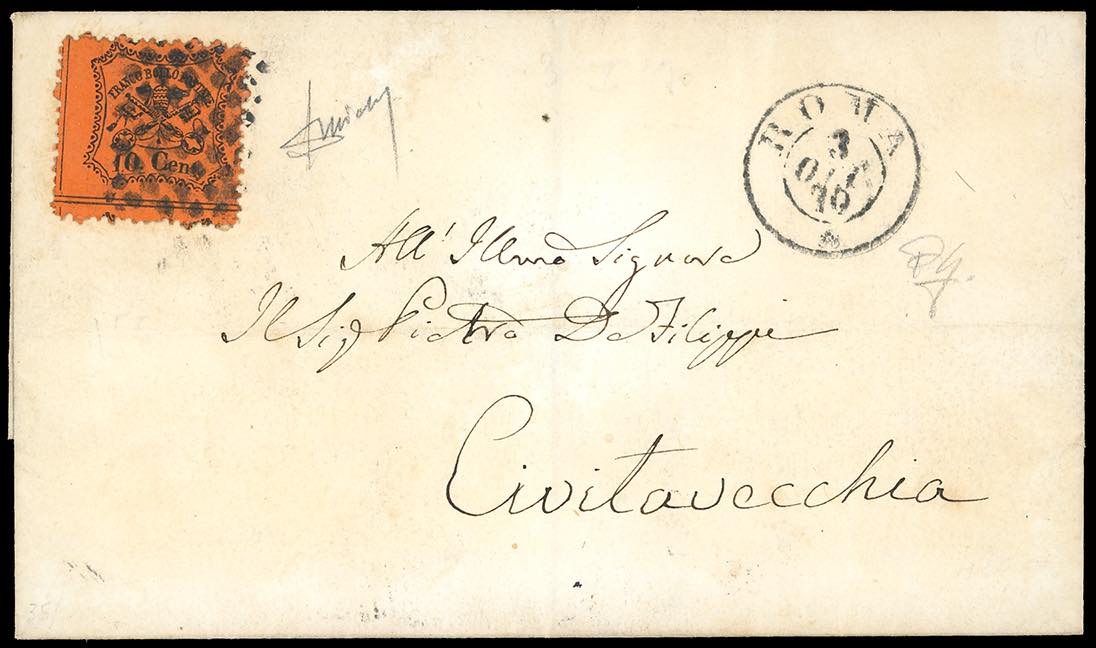 FRANCO BOLLO POSTALE
10. Cent
ROMA
3
OTT
70
All' Illmo Signore
Il Sig Pietro De Filippi
Civitavecchia